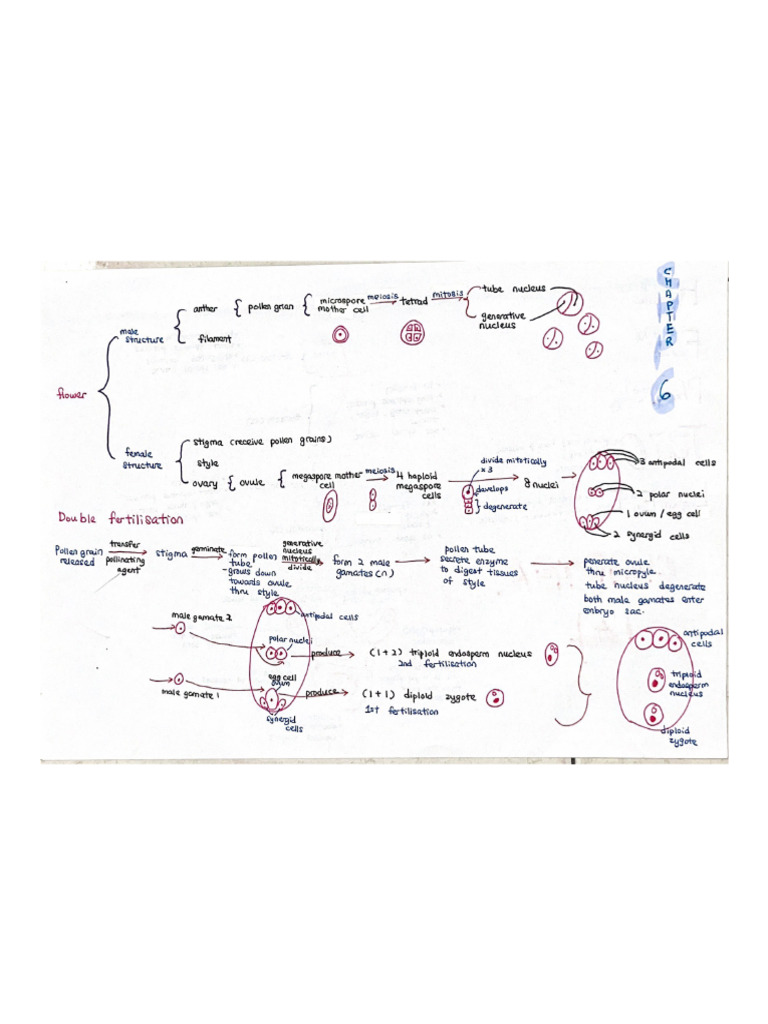 CHAPTER 6
flower
male structure
anther { pollen grian { microspore mother cell
meiosis
tetrad
mitosis
tube nucleus
generative nucleus
filament
female structure
stigma (receive pollen grains)
style
ovary { ovule { megaspore mother cell
meiosis
4 haploid megaspore cells
divide mitotically x 3
develops
} degenerate
8 nuclei
3 antipodal cells
2 polar nuclei
1 ovum / egg cell
2 synergid cells
Double fertilisation
Pollen grain released
transfer
pollinating agent
stigma
germinate
form pollen tube
- grows down towards ovule thru style
generative nucleus mitotically divide
form 2 male gamates (n)
pollen tube secrete enzyme to digest tissues of style
penerate ovule thru micropyle.
tube nucleus degenerate
both male gamates enter embryo sac.
male gamate 2
antipodal cells
polar nuclei
produce
(1+2) triploid endosperm nucleus
2nd fertilisation
male gamate 1
egg cell
ovum
produce
(1+1) diploid zygote
1st fertilisation
synergid cells
antipodal cells
triploid endosperm nucleus
diploid zygote